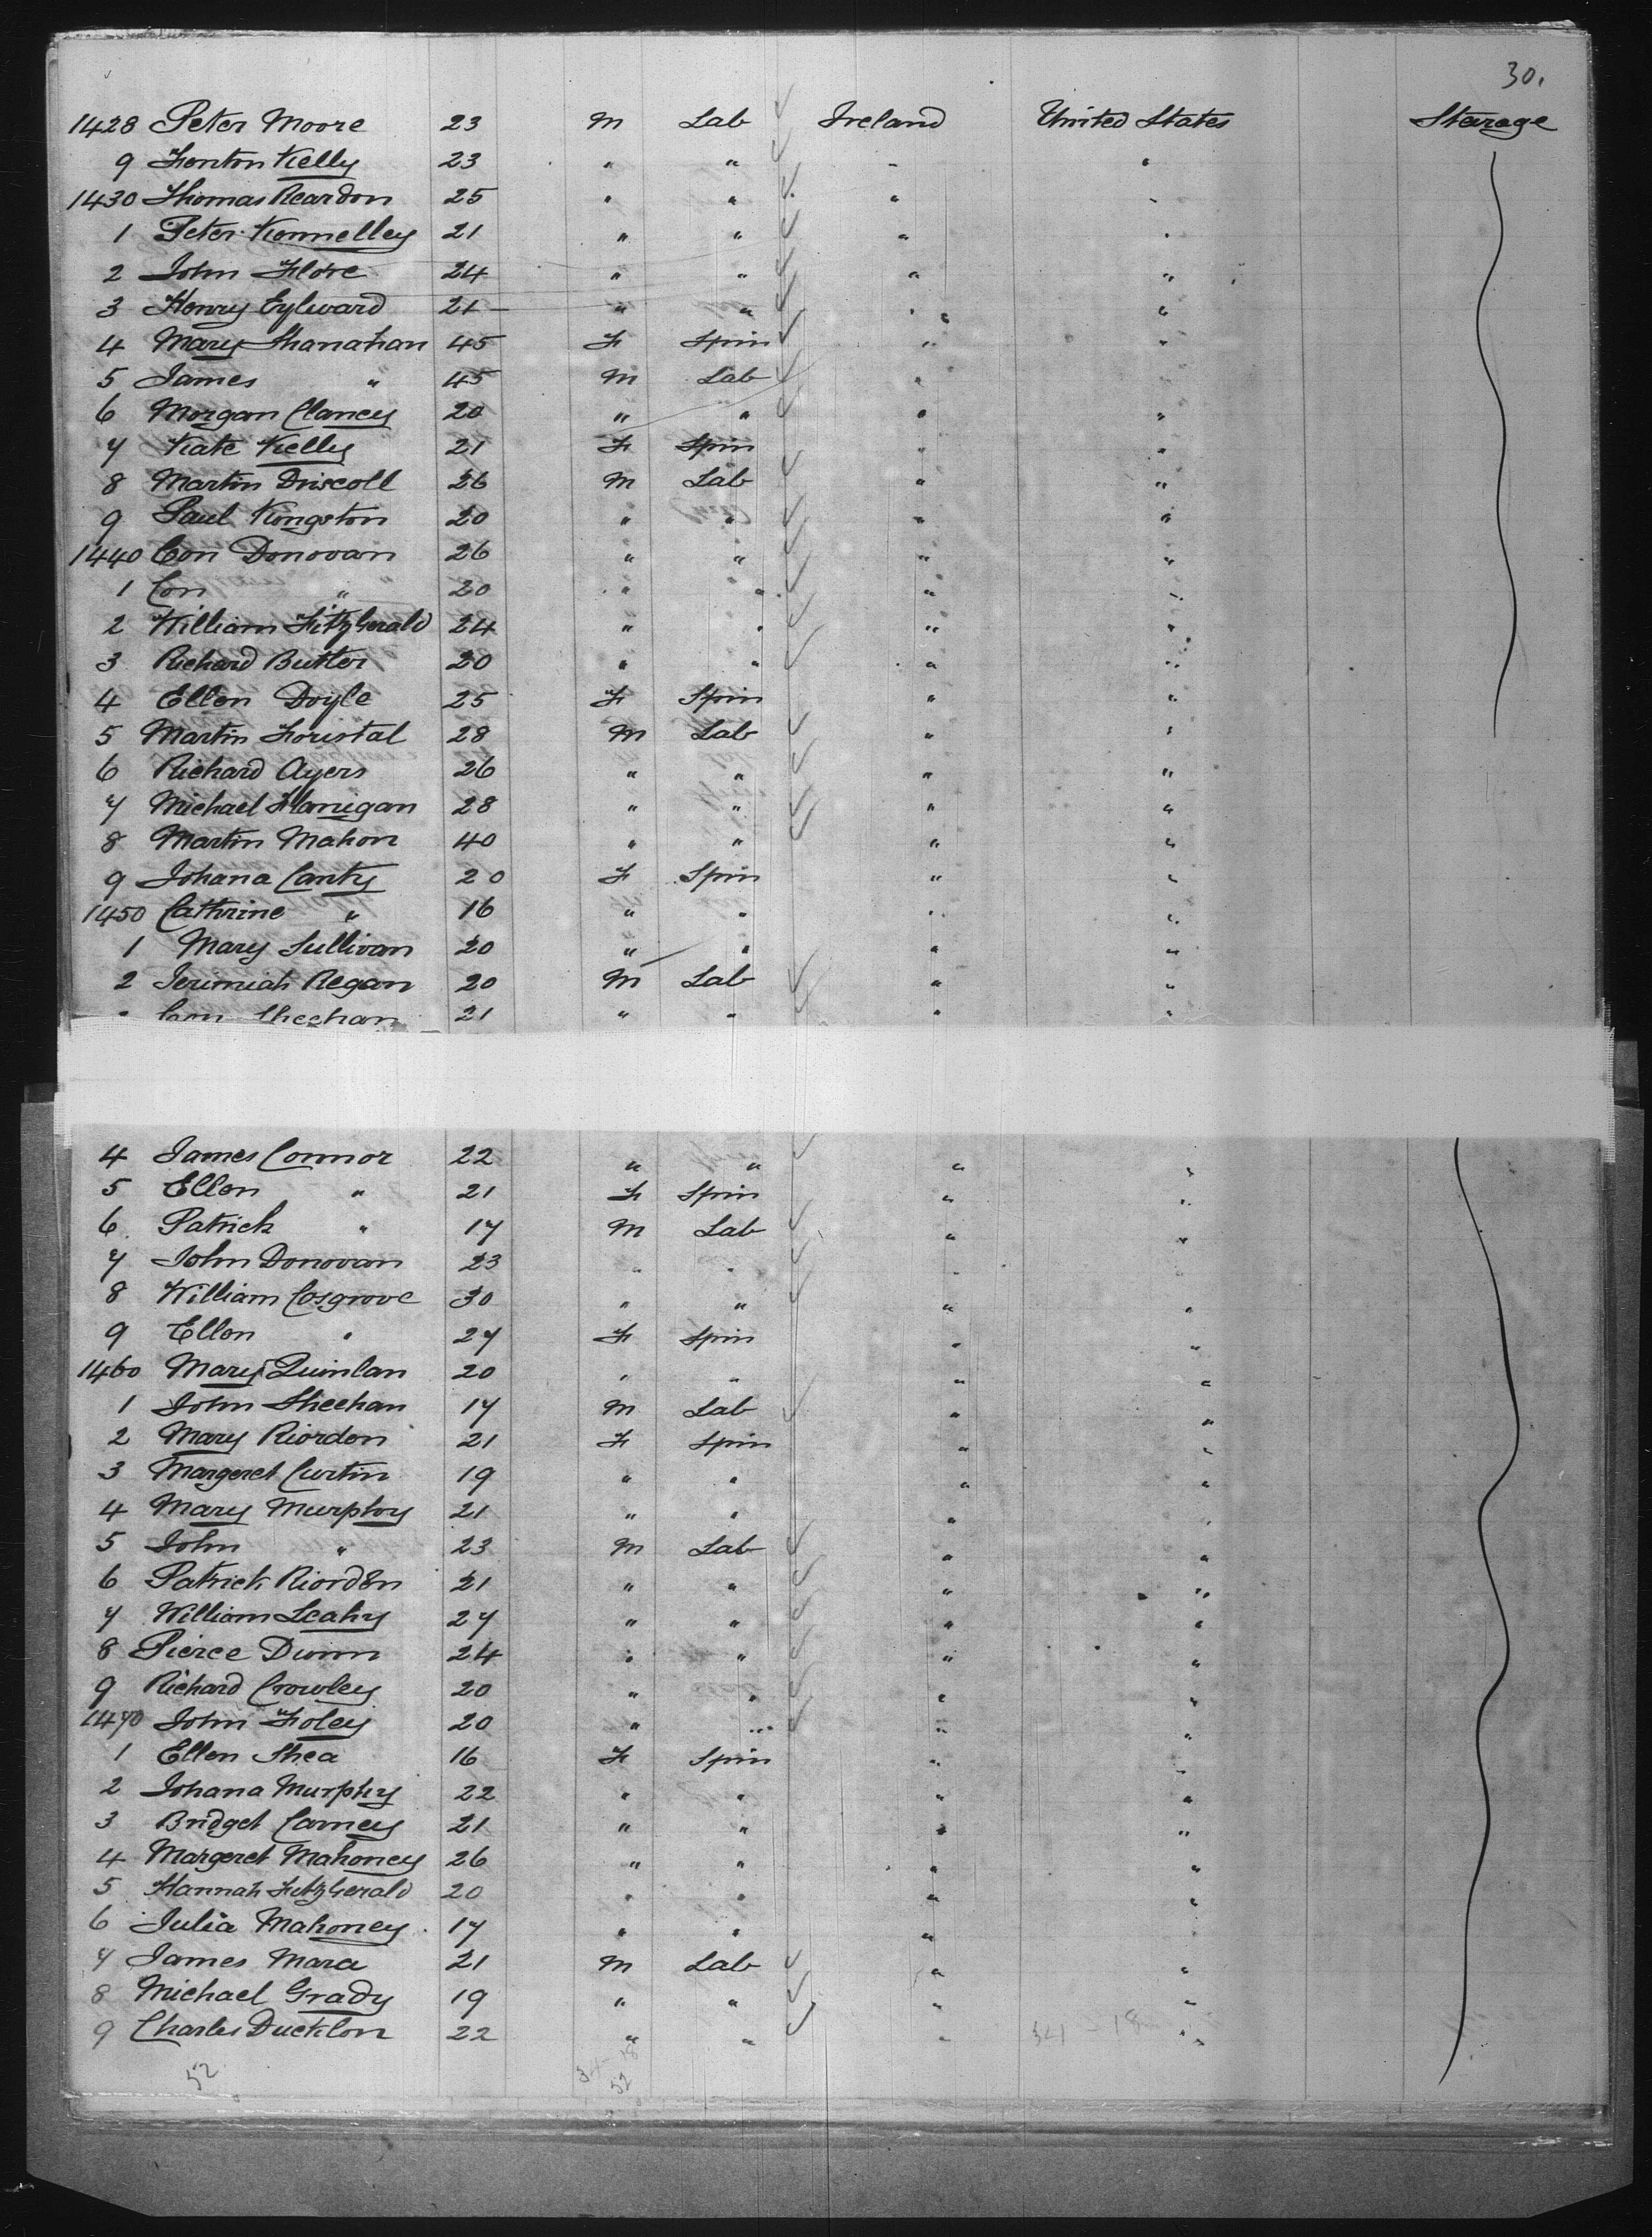 30.
1428 Peter Moore 23 M Lab Ireland United States Sterage
9 Fenton Kelly 23 " " " "
1430 Thomas Reardon 25 " " " "
1 Peter Konnelley 21 " " " "
2 John 24 " " " "
3 Henry Eylward 21 " " " "
4 Mary Shanahan 45 F Spin " "
5 James " 45 M Lab " "
6 Morgan Clancy 20 " " " "
7 Kate Kelly 21 F Spin " "
8 Martin Driscoll 26 M Lab " "
9 Paul Kingston 20 " " " "
1440 Con Donovan 26 " " " "
1 Con " 20 " " " "
2 William FitzGerald 24 " " " "
3 Richard Butler 20 " " " "
4 Ellen Doyle 25 F Spin " "
5 Martin Foristal 28 M Lab " "
6 Richard Ayers 26 " " " "
7 Michael Flanigan 28 " " " "
8 Martin Mahon 40 " " " "
9 Johana Canty 20 F Spin " "
1450 Cathrine " 16 " " " "
1 Mary Sullivan 20 " " " "
2 Jerimiah Regan 20 M Lab " "
Con Sheehan 21 " " " "
4 James Connor 22 " " " "
5 Ellen " 21 F Spin " "
6 Patrick " 17 M Lab " "
7 John Donovan 23 " " " "
8 William Cosgrove 30 " " " "
9 Ellen " 27 F Spin " "
1460 Mary Quinlan 20 " " " "
1 John Sheehan 17 M Lab " "
2 Mary Riordon 21 F Spin " "
3 Margeret Curtin 19 " " " "
4 Mary Murphy 21 " " " "
5 John " 23 M Lab " "
6 Patrick Riorden 21 " " " "
7 William Leahy 27 " " " "
8 Pierce Dunn 24 " " " "
9 Richard Crowley 20 " " " "
1470 John Foley 20 " " " "
1 Ellen Shea 16 F Spin " "
2 Johana Murphy 22 " " " "
3 Bridget Carney 21 " " " "
4 Margeret Mahoney 26 " " " "
5 Hannah FitzGerald 20 " " " "
6 Julia Mahoney 17 " " " "
7 James Mara 21 M Lab " "
8 Michael Grady 19 " " " "
9 Charles Ducklon 22 " " " "
341 - 18
52
34 18
52